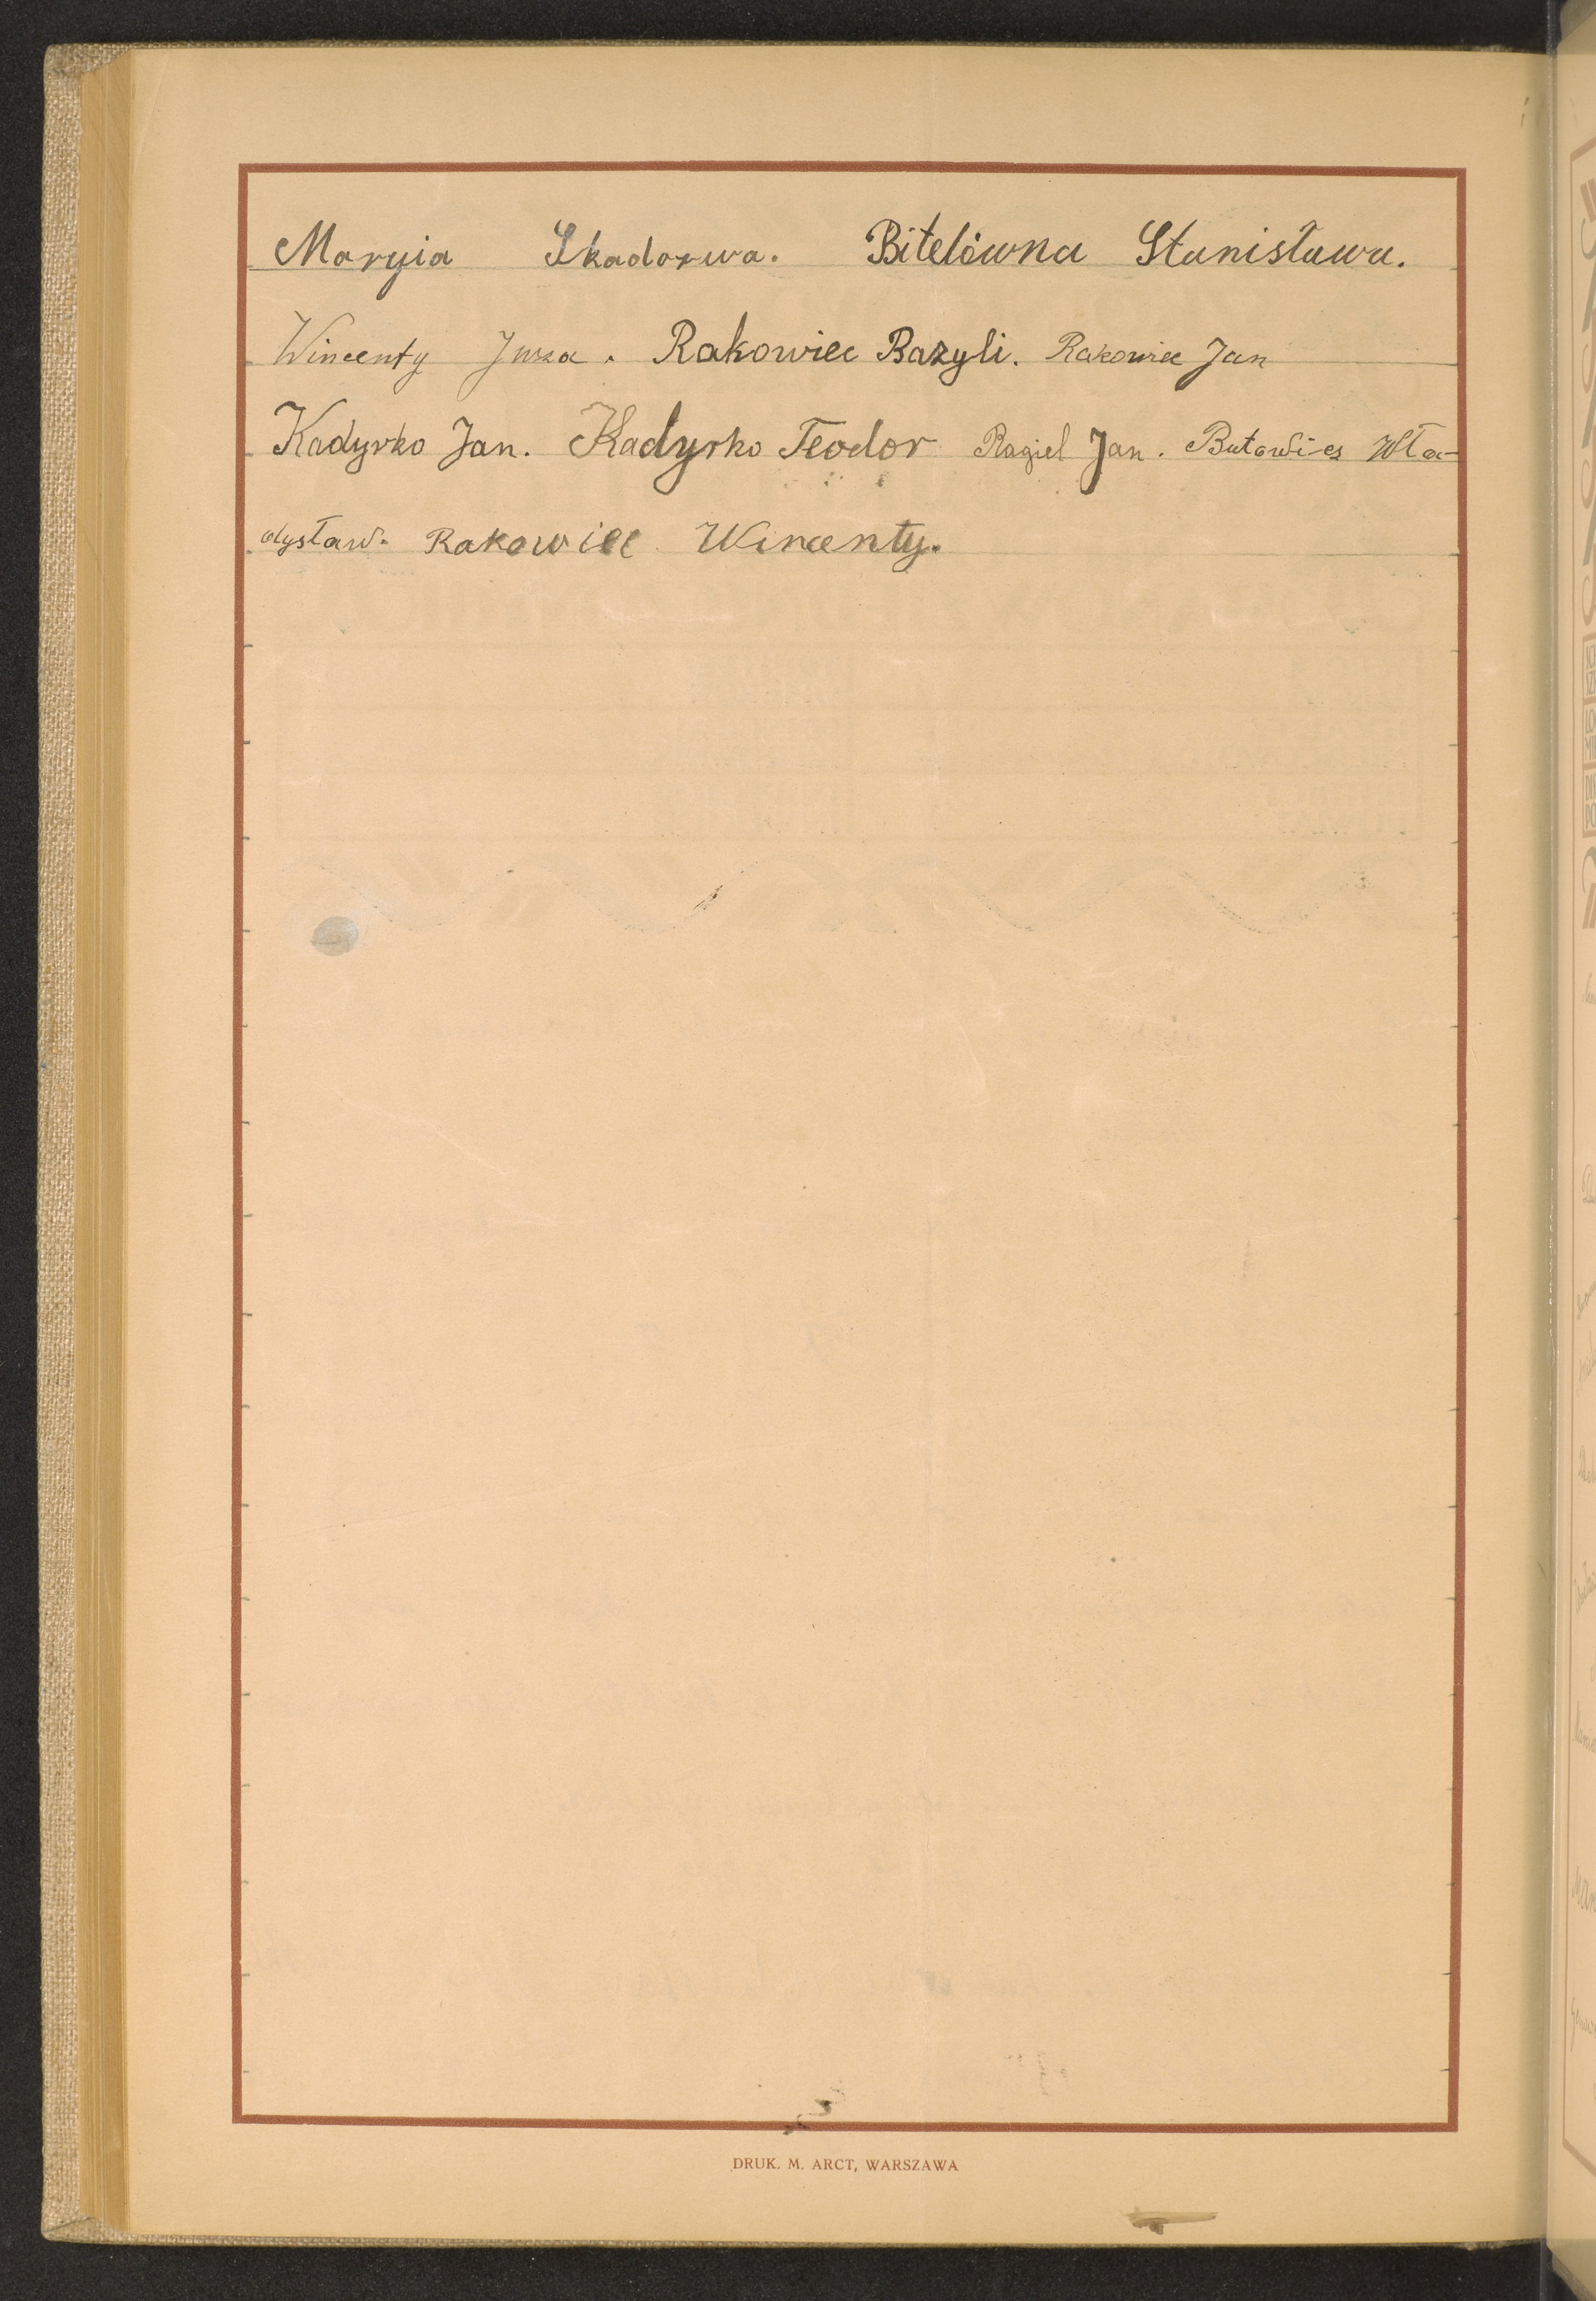 Maryia Skadorwa. Bitelówna Stanisława.
Wincenty Jwza. Rakowiec Bazyli. Rakowiec Jan
Kadyrko Jan. Kadyrko Teodor Ragiel Jan. Butowicz Wła-
dysław. Rakowiec Wincenty.
DRUK. M. ARCT, WARSZAWA